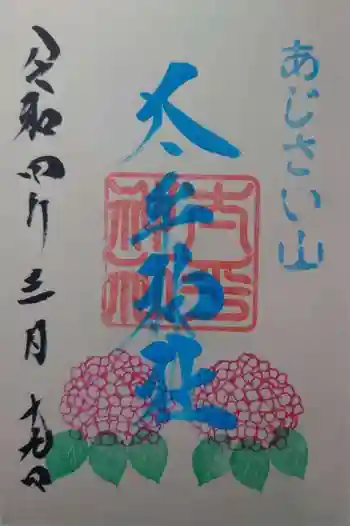 あじさい山
太平神社
太平神社
令和四年三月十九日